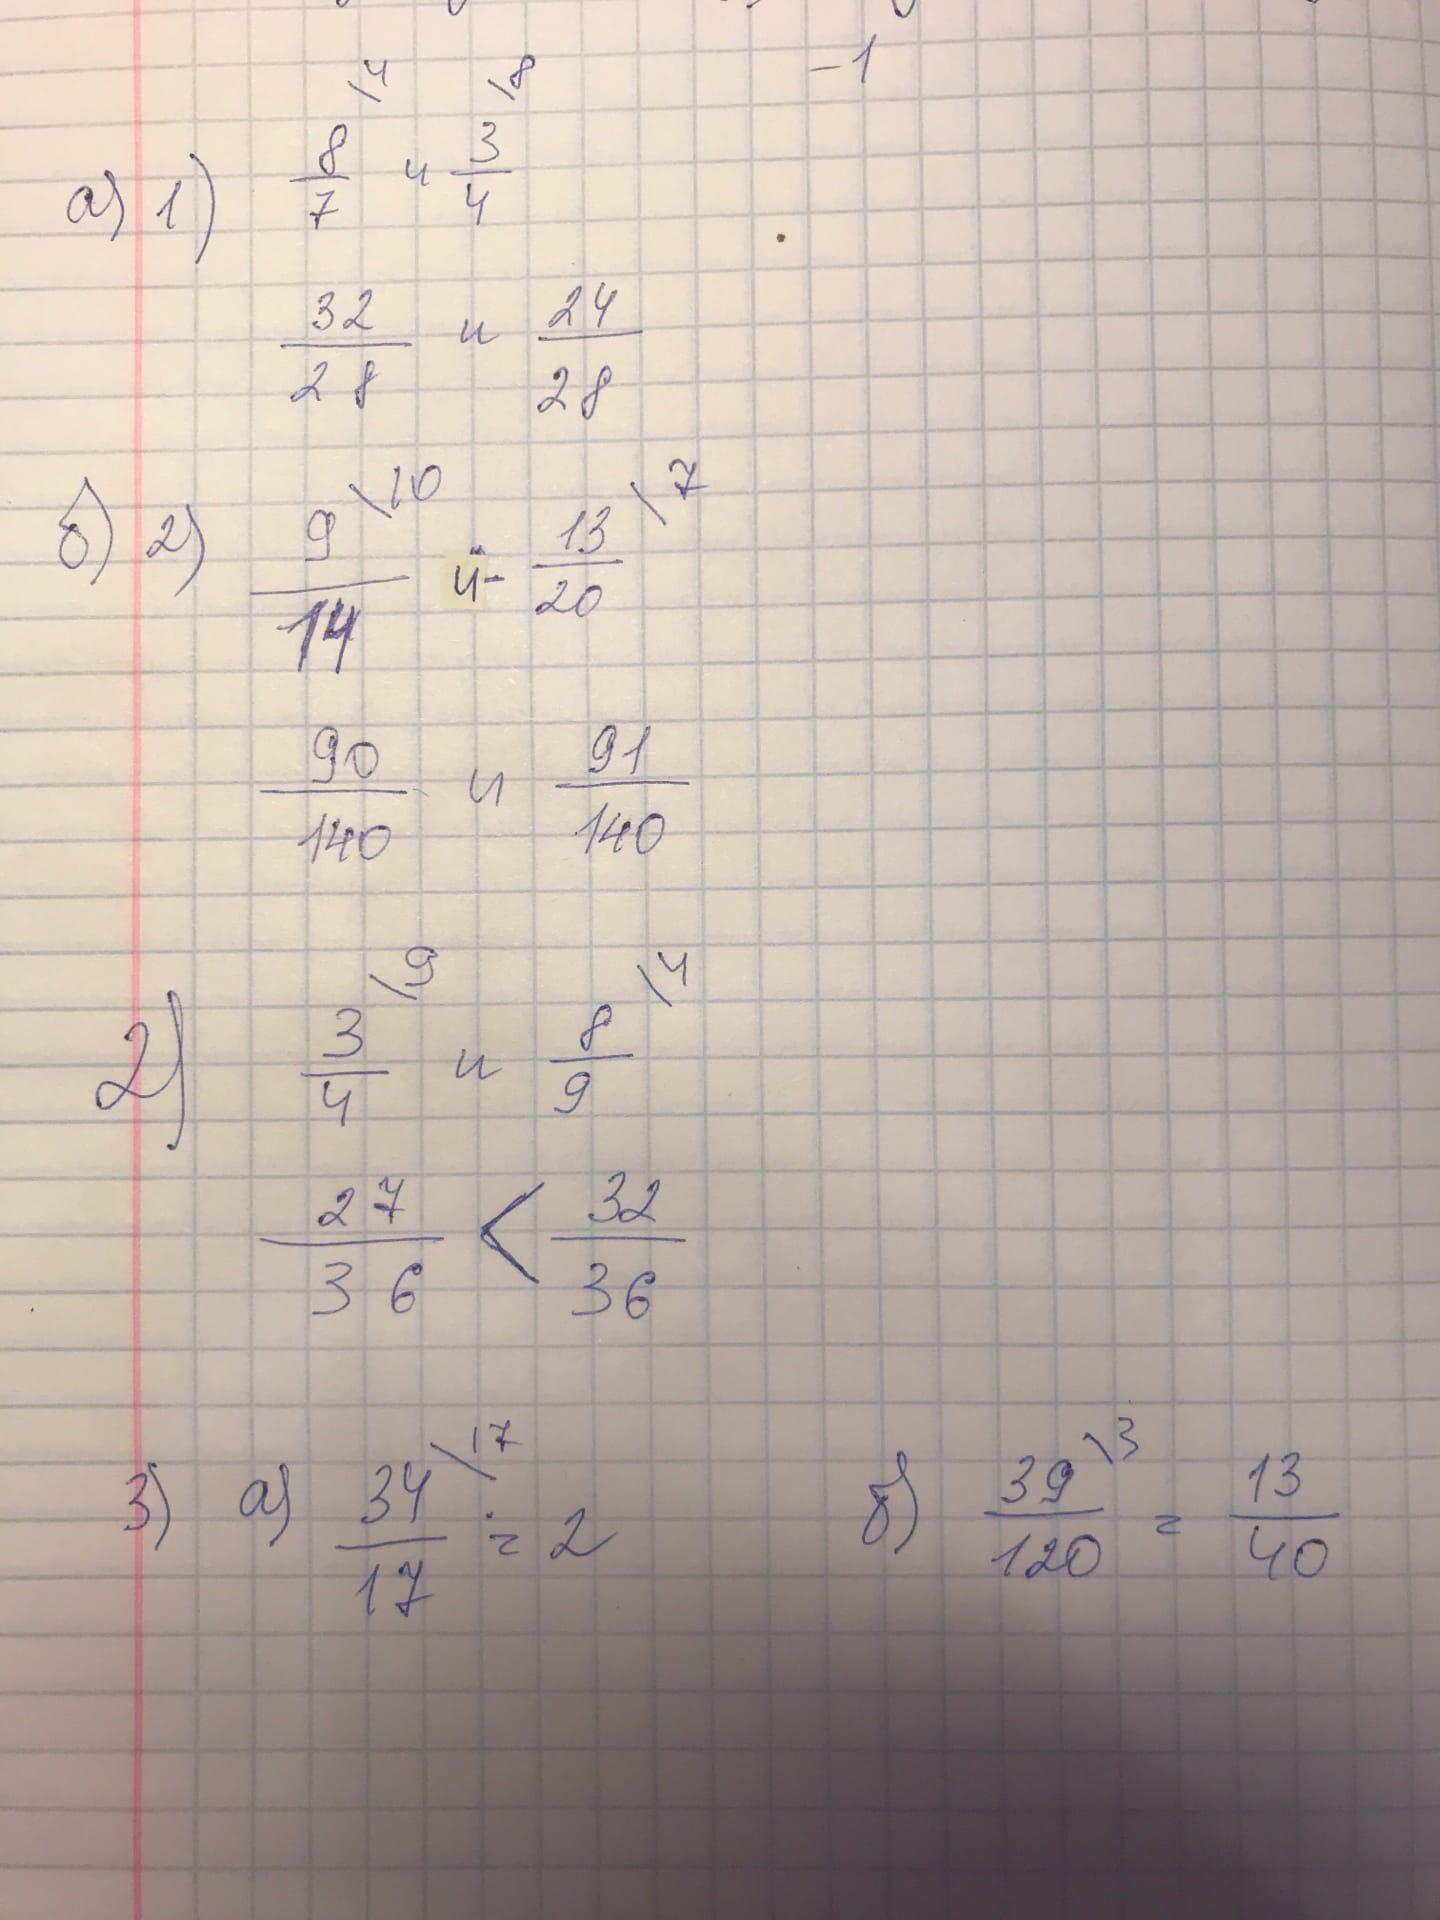 -1
\4 \8
а) 1) 8/7 и 3/4
32/28 и 24/28
б) 2) 9/14 \10 и 13/20 \7
90/140 и 91/140
2) 3/4 \9 и 8/9 \4
27/36 < 32/36
3) а) 34/17 \17 = 2 б) 39/120 \3 = 13/40